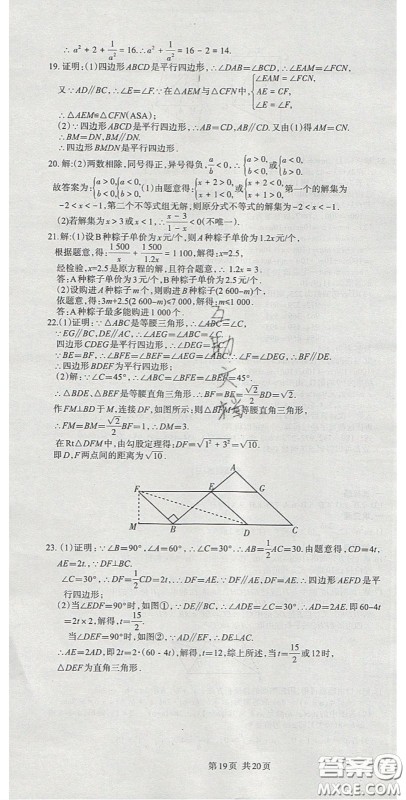 ∴a²+2+1/a²=16.∴a²+1/a²=16-2=14.
19.证明:(1)四边形ABCD是平行四边形,∴∠DAB=∠BCD,∴∠EAM=∠FCN,
又∵AD∥BC,∴∠E=∠F.∵在△AEM与△CFN中,{∠EAM=∠FCN, AE=CF, ∠E=∠F,
∴△AEM≌△CFN(ASA);
(2)∵四边形ABCD是平行四边形,∴AB=CD,AB∥CD.又由(1)得AM=CN.
∴BM=DN,BM∥DN.
∴四边形BMDN是平行四边形.
20.解:(2)两数相除,同号得正,异号得负,a/b<0,∴{a>0, b<0或{a<0, b>0.
故答案为:{a>0, b<0或{a<0, b>0,(1)由题意得:{x+2>0, x+1<0或{x+2<0, x+1>0,第一个的解集为
-2<x<-1,第二个不等式组无解,则原分式不等式的解集为-2<x<-1.
(2)若解集为x>3或x<1,∴(x-3)/(x-1)<0(不唯一).
21.解:(1)设B种粽子单价为x元/个,则A种粽子单价为1.2x元/个,
根据题意,得:1500/x+1500/1.2x=1100,解得:x=2.5.
经检验,x=2.5是原方程的解,且符合题意,∴1.2x=3.
答:A种粽子单价为3元/个,B种粽子单价为2.5元/个.
(2)设购进A种粽子m个,则购进B种粽子(2600-m)个,
依题意,得:3m+2.5(2600-m)≤7000,解得:m≤1000.
答:A种粽子最多能购进1000个.
22.(1)证明:∵△ABC是等腰三角形,∴∠ABC=∠C,
∵EG∥BC,DE∥AC,∴∠AEG=∠ABC=∠C,
四边形CDEG是平行四边形,∴∠DEG=∠C.
∵BE=BF,∴∠BFE=∠BEF=∠AEG=∠ABC,∴∠F=∠DEG,BF∥DE.
∴四边形BDEF为平行四边形;
(2)解:∵∠C=45°,∴∠ABC=∠BFE=∠BEF=45°.
∴△BDE、△BEF是等腰直角三角形,∴BF=BE=√2/2 BD=√2.
作FM⊥BD于M,连接DF,如图所示:则△BFM是等腰直角三角形,
∴FM=BM=√2/2 BF=1,∴DM=3.
在Rt△DFM中,由勾股定理得:DF=√(1²+3²)=√10.
即D,F两点间的距离为√10.
A
F E G
M B D C
23.(1)证明:∵∠B=90°,∠A=60°,∴∠C=30°.∴AB=1/2 AC=30.由题意得,CD=4t,
AE=2t,∵DF⊥BC.
∠C=30°,∴DF=1/2 CD=2t,∴DF=AE.∵DF∥AE,DF=AE.∴四边形AEFD是平
行四边形;
(2)当∠EDF=90°时,如图①,∵DE∥BC,∴∠ADE=∠C=30°,∴AD=2AE.即60-4t
=2t×2,解得,t=15/2.
当∠DEF=90°时,如图②,∵AD∥EF,∴DE⊥AC.
∴AE=2AD,即2t=2·(60-4t),解得,t=12,综上所述,当t=15/2或12时,
△DEF为直角三角形.
第19页 共20页